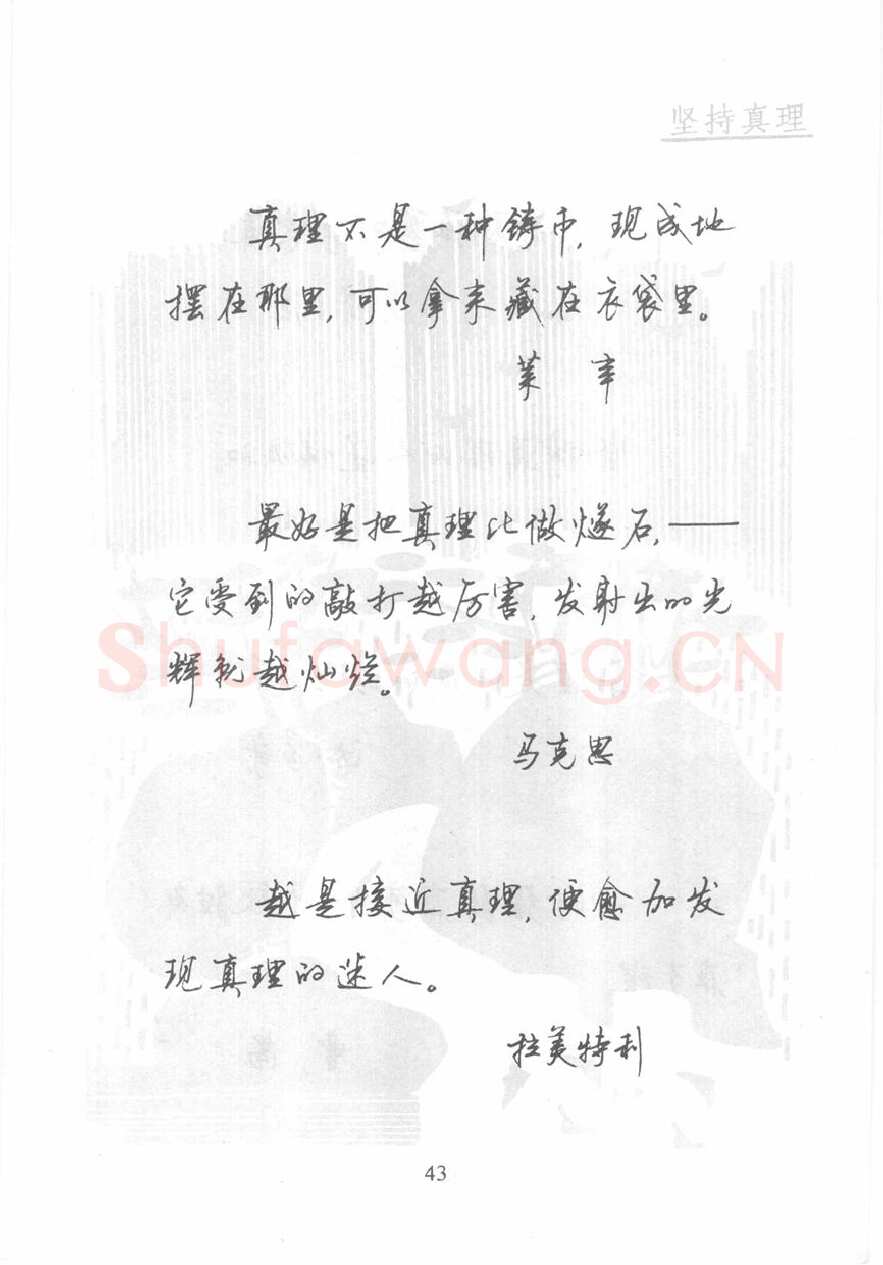 坚持真理
真理不是一种铸币，现成地
摆在那里，可以拿来藏在衣袋里。
莱 辛
最好是把真理比做燧石，——
它受到的敲打越厉害，发射出的光
辉就越灿烂。
Shufawang.CN
马克思
越是接近真理，便愈加发
现真理的迷人。
拉美特利
43